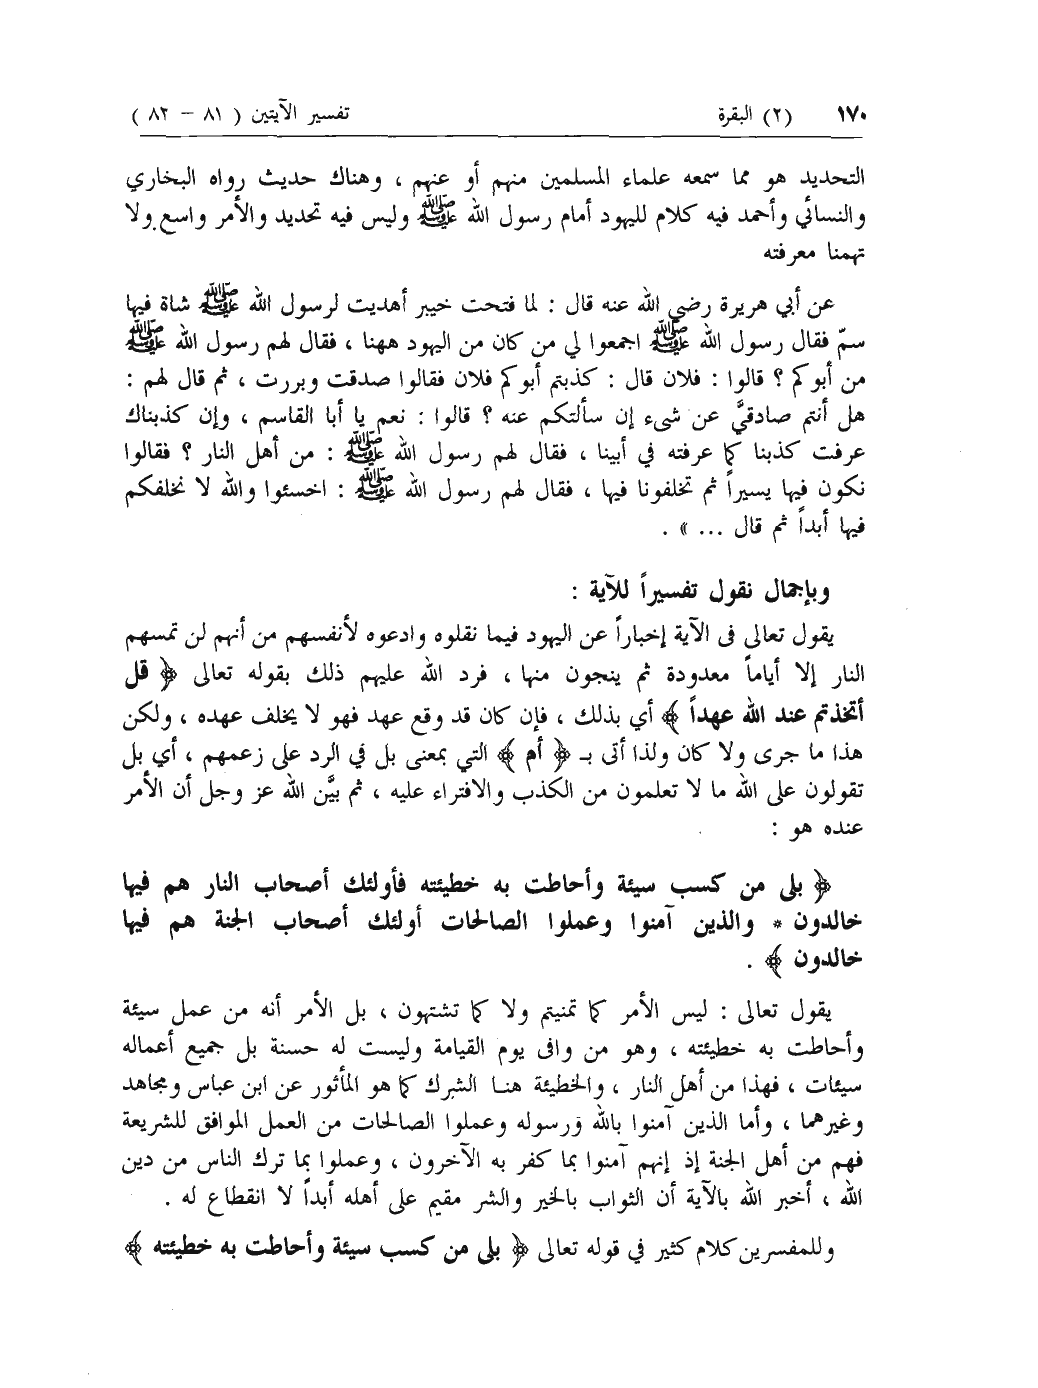 ١٧٠ (٢) البقرة تفسير الآيتين ( ٨١ – ٨٢ )
التحديد هو مما سمعه علماء المسلمين منهم أو عنهم ، وهناك حديث رواه البخاري
والنسائي وأحمد فيه كلام لليهود أمام رسول الله ﷺ وليس فيه تحديد والأمر واسع ولا
تهمنا معرفته
عن أبي هريرة رضي الله عنه قال : لما فتحت خيبر أهديت لرسول الله ﷺ شاة فيها
سمّ فقال رسول الله ﷺ اجمعوا لي من كان من اليهود ههنا ، فقال لهم رسول الله ﷺ
من أبوكم ؟ قالوا : فلان قال : كذبتم أبوكم فلان فقالوا صدقت وبررت ، ثم قال لهم :
هل أنتم صادقيَّ عن شىء إن سألتكم عنه ؟ قالوا : نعم يا أبا القاسم ، وإن كذبناك
عرفت كذبنا كما عرفته في أبينا ، فقال لهم رسول الله ﷺ : من أهل النار ؟ فقالوا
نكون فيها يسيراً ثم تخلفونا فيها ، فقال لهم رسول الله ﷺ : اخسئوا والله لا نخلفكم
فيها أبداً ثم قال ... » .
وبإجمال نقول تفسيراً للآية :
يقول تعالى فى الآية إخباراً عن اليهود فيما نقلوه وادعوه لأنفسهم من أنهم لن تمسهم
النار إلا أياماً معدودة ثم ينجون منها ، فرد الله عليهم ذلك بقوله تعالى ﴿ قل
أتخذتم عند الله عهداً ﴾ أي بذلك ، فإن كان قد وقع عهد فهو لا يخلف عهده ، ولكن
هذا ما جرى ولا كان ولذا أتى بـ ﴿ أم ﴾ التي بمعنى بل في الرد على زعمهم ، أي بل
تقولون على الله ما لا تعلمون من الكذب والافتراء عليه ، ثم بيَّن الله عز وجل أن الأمر
عنده هو :
﴿ بلى من كسب سيئة وأحاطت به خطيئته فأولئك أصحاب النار هم فيها
خالدون * والذين آمنوا وعملوا الصالحات أولئك أصحاب الجنة هم فيها
خالدون ﴾ .
يقول تعالى : ليس الأمر كما تمنيتم ولا كما تشتهون ، بل الأمر أنه من عمل سيئة
وأحاطت به خطيئته ، وهو من وافى يوم القيامة وليست له حسنة بل جميع أعماله
سيئات ، فهذا من أهل النار ، والخطيئة هنا الشرك كما هو المأثور عن ابن عباس ومجاهد
وغيرهما ، وأما الذين آمنوا بالله ورسوله وعملوا الصالحات من العمل الموافق للشريعة
فهم من أهل الجنة إذ إنهم آمنوا بما كفر به الآخرون ، وعملوا بما ترك الناس من دين
الله ، أخبر الله بالآية أن الثواب بالخير والشر مقيم على أهله أبداً لا انقطاع له .
وللمفسرين كلام كثير في قوله تعالى ﴿ بلى من كسب سيئة وأحاطت به خطيئته ﴾